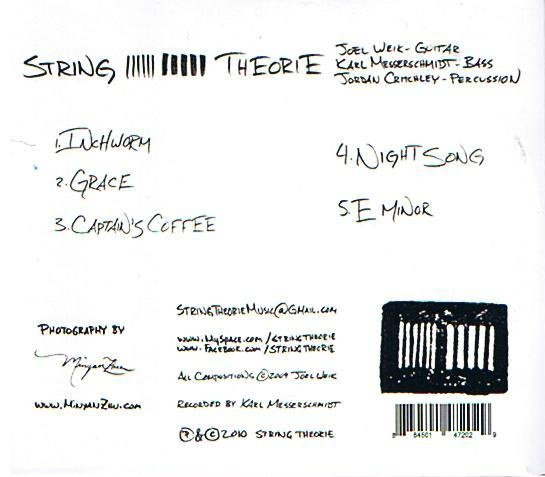 STRING THEORIE
JOEL WEIK - GUITAR
KARL MESSERSCHMIDT - BASS
JORDAN CRITCHLEY - PERCUSSION
1. INCHWORM
2. GRACE
3. CAPTAIN'S COFFEE
4. NIGHT SONG
5. E MINOR
STRINGTHEORIEMUSIC@GMAIL.COM
WWW.MYSPACE.COM/STRINGTHEORIE
WWW.FACEBOOK.COM/STRINGTHEORIE
ALL COMPOSITIONS © 2009 JOEL WEIK
RECORDED BY KARL MESSERSCHMIDT
℗ & © 2010 STRING THEORIE
PHOTOGRAPHY BY
Minyan Zhu
WWW.MINYANZHU.COM
8 84501 47202 9